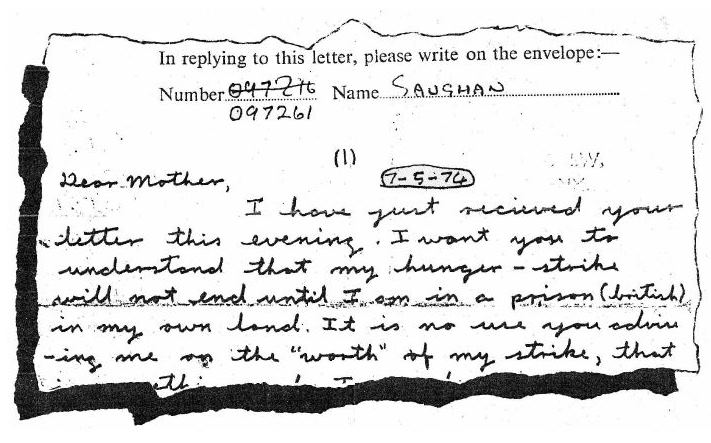 In replying to this letter, please write on the envelope:—
Number 097216 Name SAUGHAN
097261
(1)
Dear Mother, 7-5-74
I have just recieved your
letter this evening. I want you to
understand that my hunger-strike
will not end until I am in a prison (british)
in my own land. It is no use you advis
-ing me on the "worth" of my strike, that